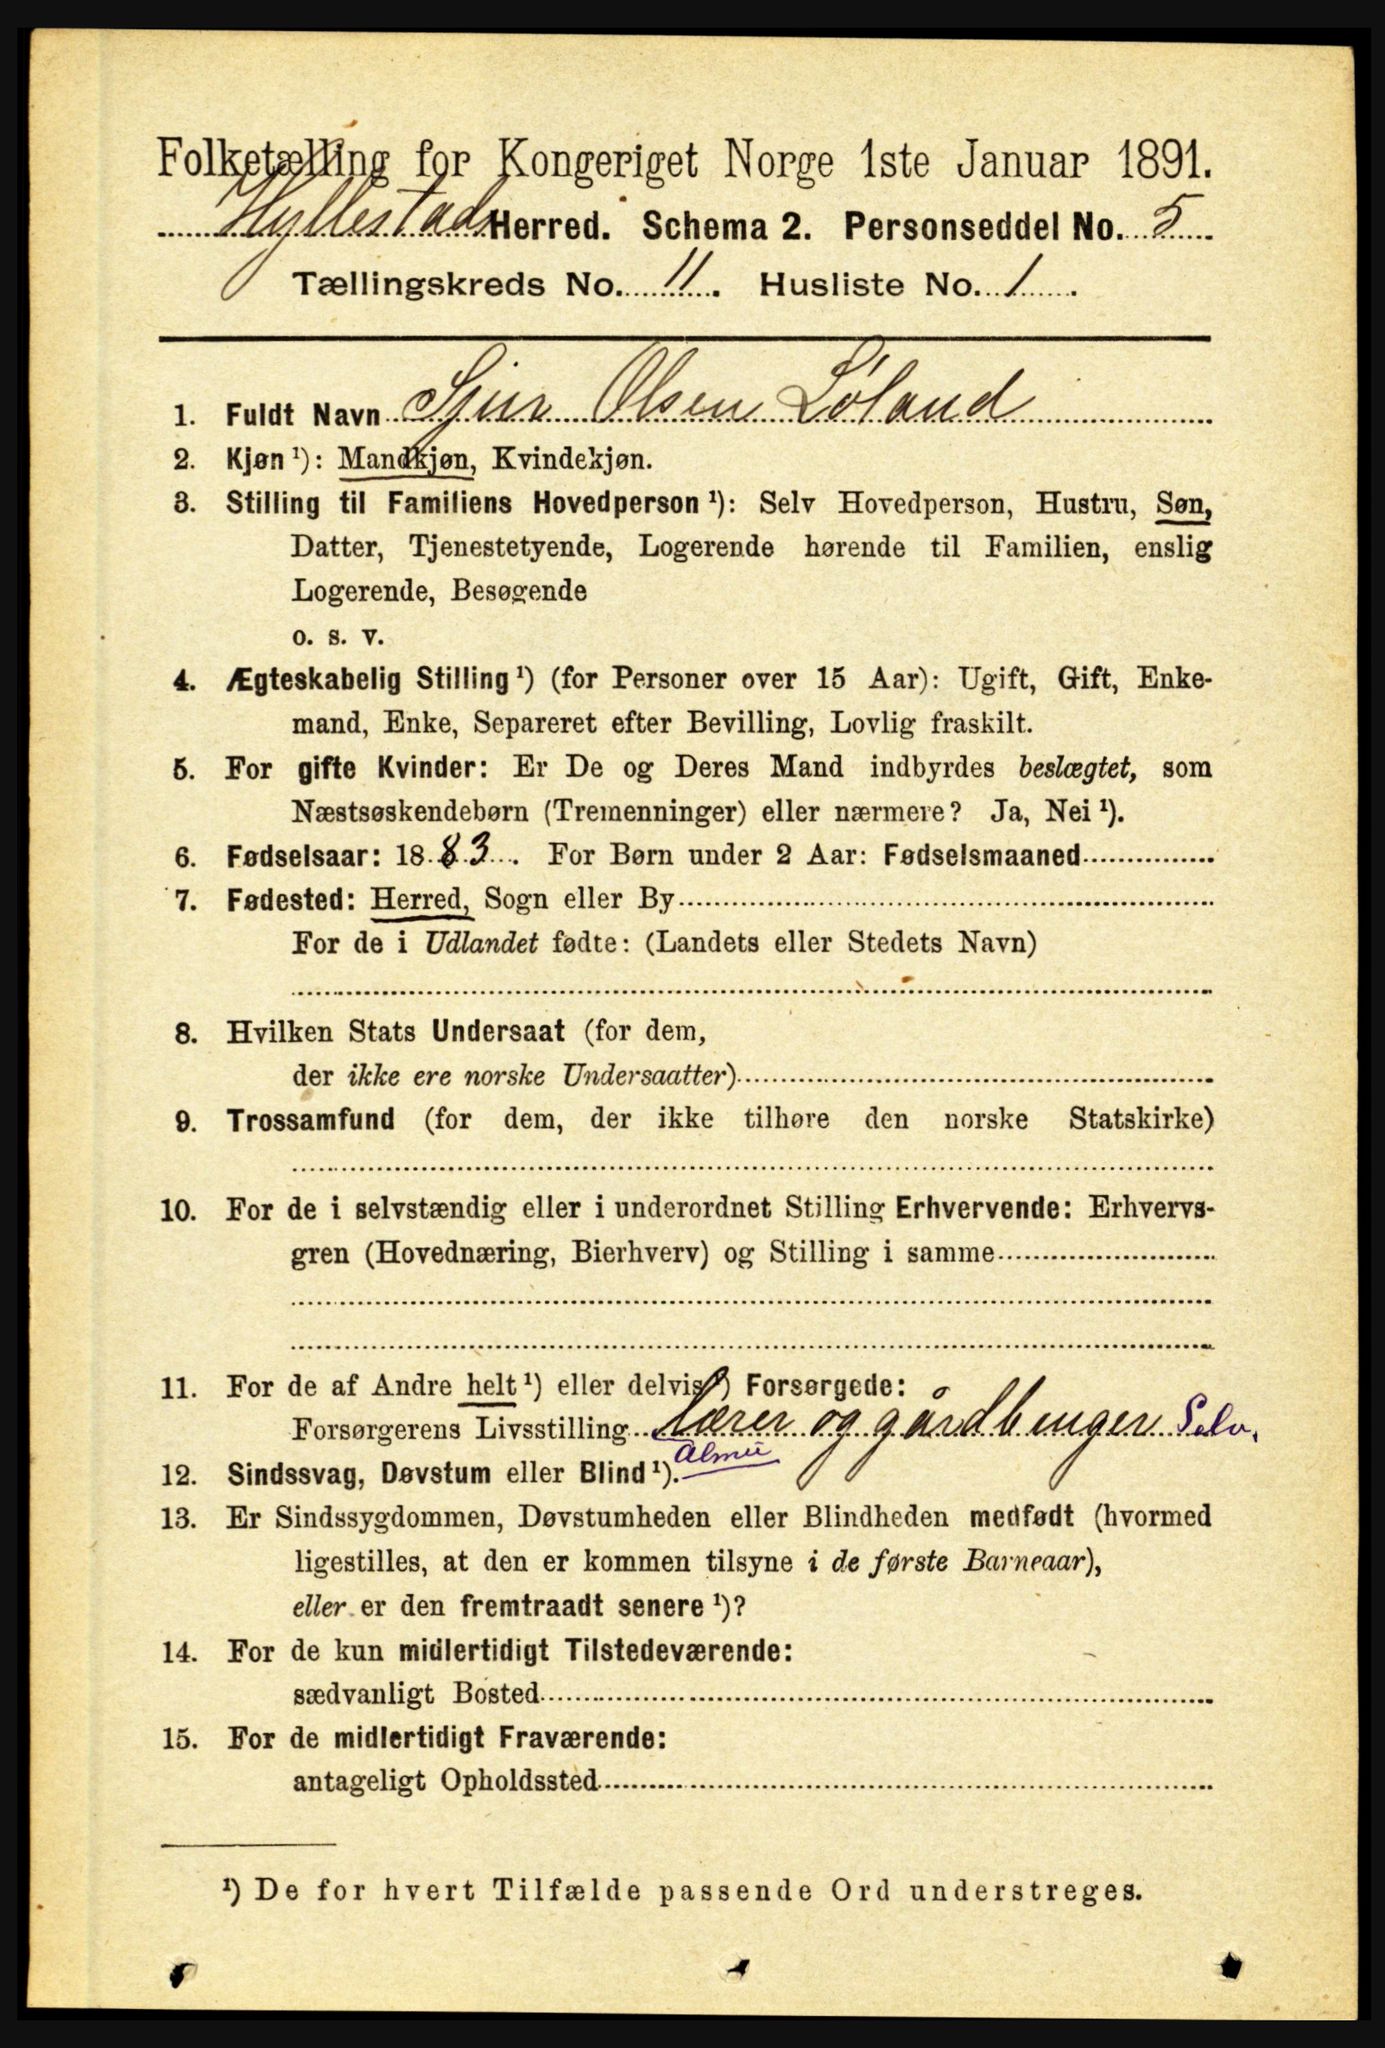 Folketælling for Kongeriget Norge 1ste Januar 1891.
Hyllestad Herred. Schema 2. Personseddel No. 5
Tællingskreds No. 11. Husliste No. 1.
1. Fuldt Navn Sjur Olsen Løland
2. Kjøn ¹): Mandkjøn, Kvindekjøn.
3. Stilling til Familiens Hovedperson ¹): Selv Hovedperson, Hustru, Søn,
Datter, Tjenestetyende, Logerende hørende til Familien, enslig
Logerende, Besøgende
o. s. v.
4. Ægteskabelig Stilling ¹) (for Personer over 15 Aar): Ugift, Gift, Enke-
mand, Enke, Separeret efter Bevilling, Lovlig fraskilt.
5. For gifte Kvinder: Er De og Deres Mand indbyrdes beslægtet, som
Næstsøskendebørn (Tremenninger) eller nærmere? Ja, Nei ¹).
6. Fødselsaar: 1883. For Børn under 2 Aar: Fødselsmaaned
7. Fødested: Herred, Sogn eller By
For de i Udlandet fødte: (Landets eller Stedets Navn)
8. Hvilken Stats Undersaat (for dem,
der ikke ere norske Undersaatter)
9. Trossamfund (for dem, der ikke tilhøre den norske Statskirke)
10. For de i selvstændig eller i underordnet Stilling Erhvervende: Erhvervs-
gren (Hovednæring, Bierhverv) og Stilling i samme
11. For de af Andre helt ¹) eller delvis ¹) Forsørgede:
Forsørgerens Livsstilling lærer og gårdbruger Selv.
Almu
12. Sindssvag, Døvstum eller Blind ¹).
13. Er Sindssygdommen, Døvstumheden eller Blindheden medfødt (hvormed
ligestilles, at den er kommen tilsyne i de første Barneaar),
eller er den fremtraadt senere ¹)?
14. For de kun midlertidigt Tilstedeværende:
sædvanligt Bosted
15. For de midlertidigt Fraværende:
antageligt Opholdssted
¹) De for hvert Tilfælde passende Ord understreges.